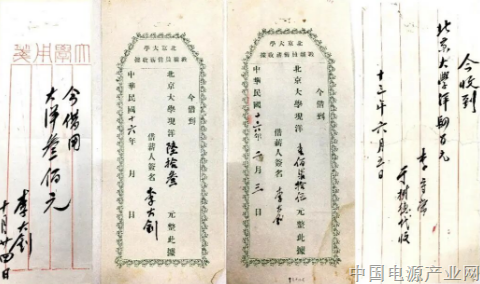 今借用
大洋叁佰元
李大釗
十月廿四日
北京大學
今借到
北京大學現洋陸拾叁元整此據
借薪人簽名李大釗
中華民國十六年 月 日
北京大學
今借到
北京大學現洋壹佰柒拾元整此據
借薪人簽名李大釗
中華民國十六年 月三日
今收到
北京大學洋 元
李守常
于樹德代收
年六月三日
中国电源产业网